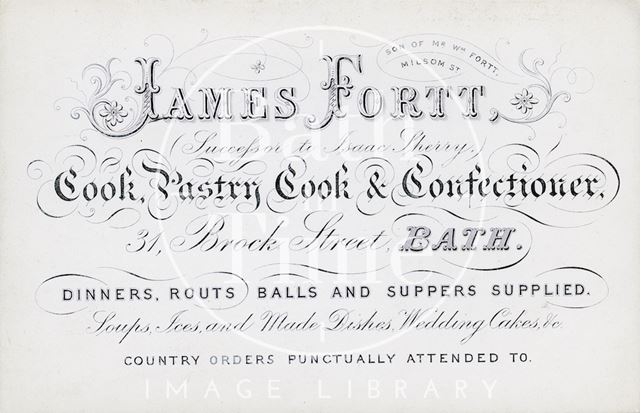 SON OF MR WM FORTT,
MILSOM ST
JAMES FORTT,
(Successor to Isaac Sherry,)
Cook, Pastry Cook & Confectioner,
31, Brock Street, BATH.
DINNERS, ROUTS BALLS AND SUPPERS SUPPLIED.
Soups, Ices, and Made Dishes, Wedding Cakes, &c.
COUNTRY ORDERS PUNCTUALLY ATTENDED TO.
Bath in Time
IMAGE LIBRARY